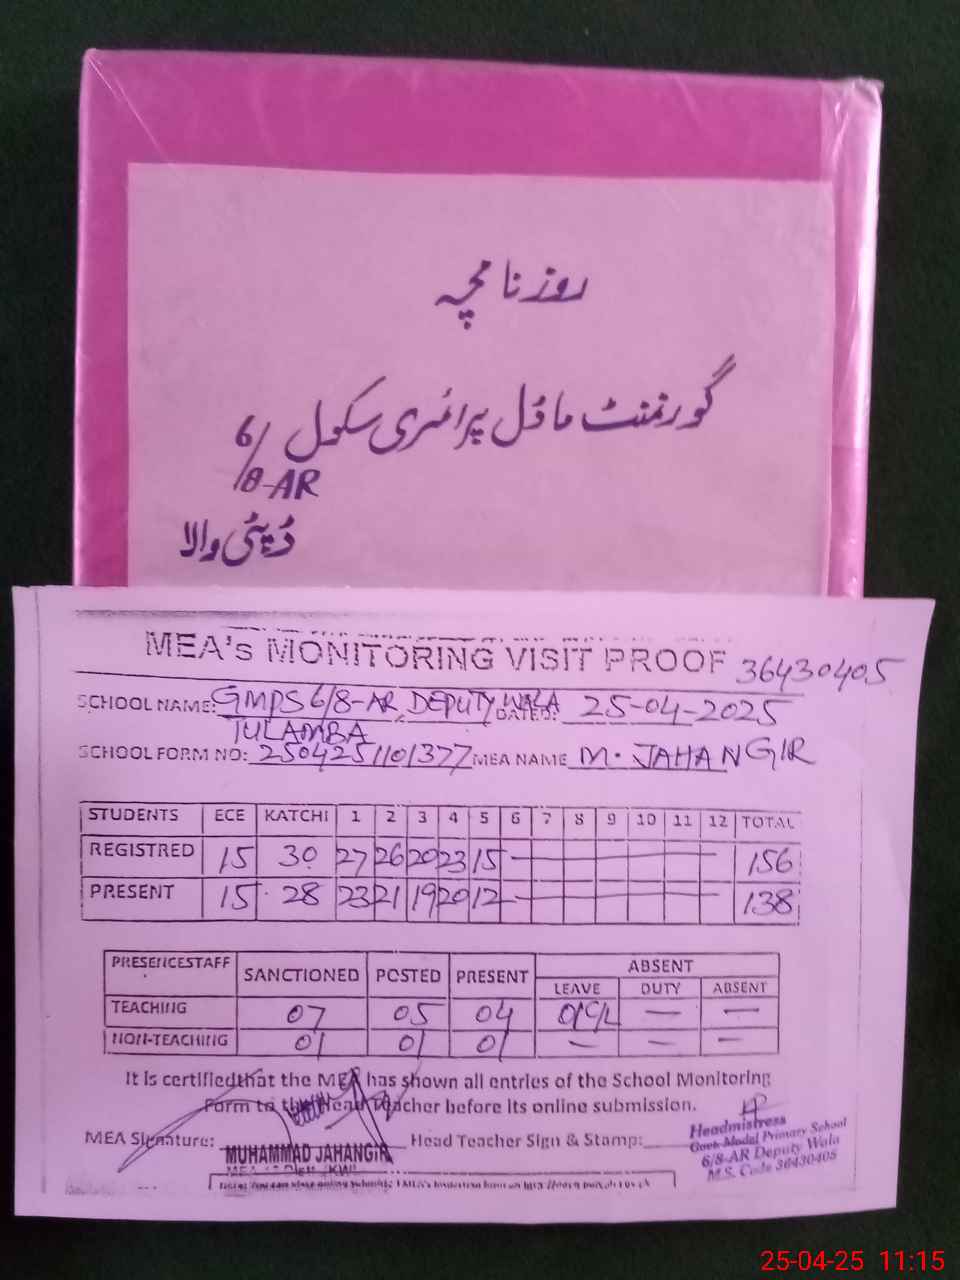 روزنامچہ
گورنمنٹ ماڈل پرائمری سکول 6/
8-AR
ڈپٹی والا
MEA's MONITORING VISIT PROOF 36430405
SCHOOL NAME: GMPS 6/8-AR DEPUTY WALA DATED: 25-04-2025
TULAMBA
SCHOOL FORM NO: 2504251101377 MEA NAME M. JAHANGIR
STUDENTS ECE KATCHI 1 2 3 4 5 6 7 8 9 10 11 12 TOTAL
REGISTRED 15 30 27 26 20 23 15 156
PRESENT 15 28 23 21 19 20 12 138
PRESENCESTAFF SANCTIONED POSTED PRESENT ABSENT
LEAVE DUTY ABSENT
TEACHING 07 05 04 01C/L — —
NON-TEACHING 01 01 01 — — —
It is certifiedthat the MEA has shown all entries of the School Monitoring
Form to the Head Teacher before its online submission.
MEA Signature: Head Teacher Sign & Stamp:
MUHAMMAD JAHANGIR
Headmistress
Govt: Model Primary School
6/8-AR Deputy Wala
M.S. Code 36430405
25-04-25 11:15